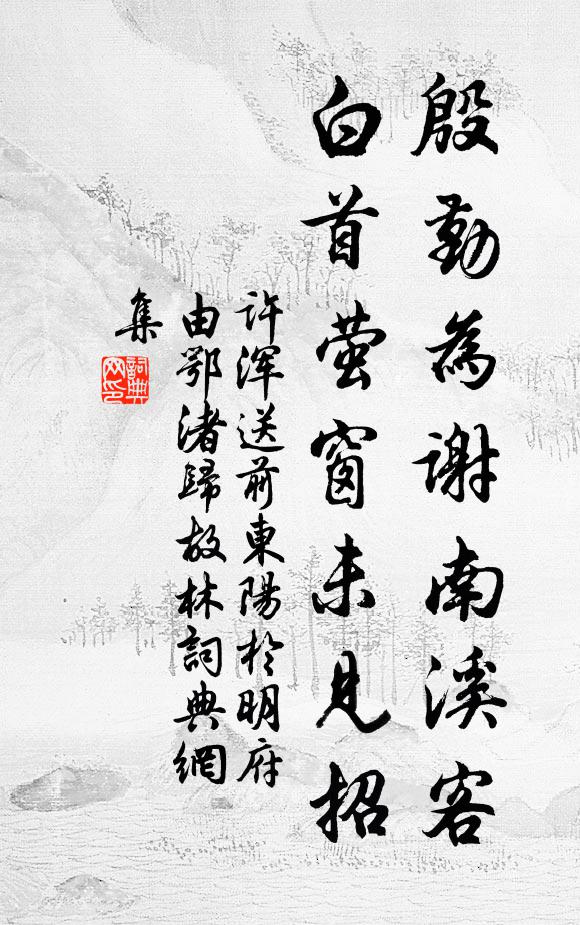 殷勤為謝南溪客
白首萤窗未見招
许浑送前東陽於明府
由鄂渚歸故林詞典網
集
詞典
网印